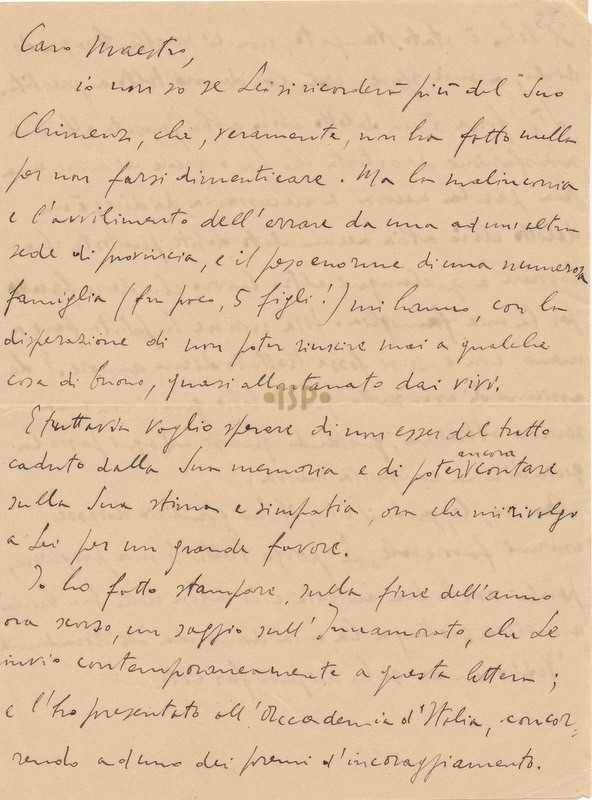 Caro Maestro,
io non so se Lei si ricorderà più del Suo
Chimenz, che, veramente, non ha fatto nulla
per non farsi dimenticare. Ma la malinconia
e l'avvilimento dell'errare da una ad un'altra
sede di provincia, e il peso enorme di una numerosa
famiglia (fra poco, 5 figli!) mi hanno, con la
disperazione di non poter riuscire mai a qualche
cosa di buono, quasi allontanato dai vivi.
•ISP•
E tuttavia voglio sperare di non esser del tutto
caduto dalla Sua memoria e di poter ancora contare
sulla Sua stima e simpatia, ora che mi rivolgo
a Lei per un grande favore.
Io ho fatto stampare, sulla fine dell'anno
ora scorso, un saggio sull'Innamorato, che Le
invio contemporaneamente a questa lettera;
e l'ho presentato all'Accademia d'Italia, concor=
rendo ad uno dei premi d'incoraggiamento.